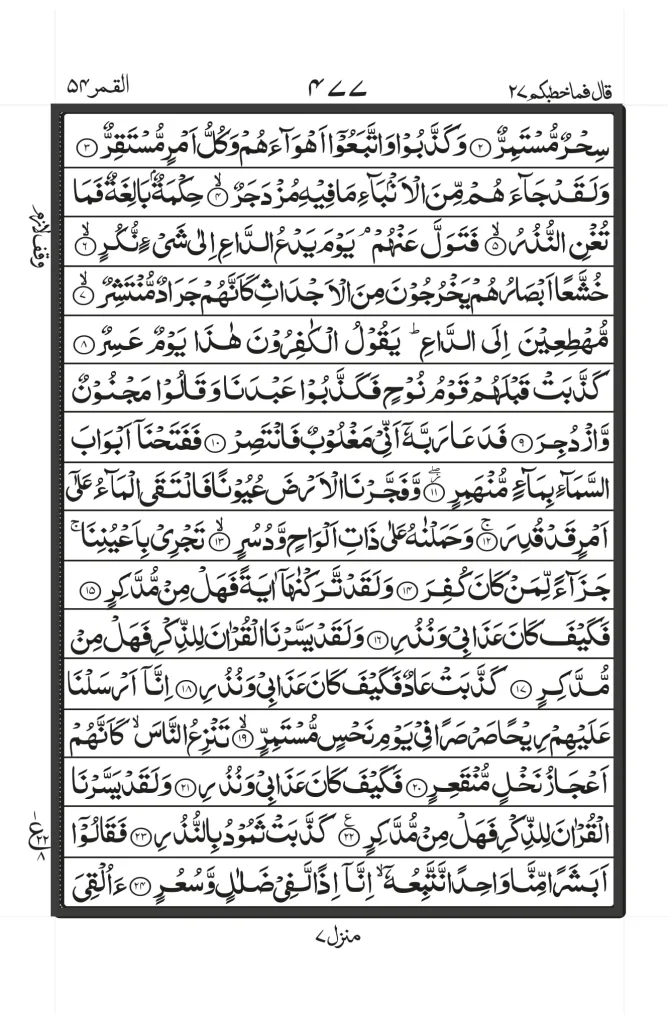 قال فما خطبكم ٢٧ ٤٧٧ القمر ٥٤
سِحْرٌ مُّسْتَمِرٌّ ﴿٢﴾ وَكَذَّبُوْا وَاتَّبَعُوْٓا اَهْوَآءَهُمْ وَكُلُّ اَمْرٍ مُّسْتَقِرٌّ ﴿٣﴾
وَلَقَدْ جَآءَهُمْ مِّنَ الْاَنْۢبَآءِ مَا فِيْهِ مُزْدَجَرٌ ۙ﴿٤﴾ حِكْمَةٌۢ بَالِغَةٌ فَمَا
تُغْنِ النُّذُرُ ۙ﴿٥﴾ فَتَوَلَّ عَنْهُمْ ۘ يَوْمَ يَدْعُ الدَّاعِ اِلٰى شَىْءٍ نُّكُرٍ ۙ﴿٦﴾
وقف لازم
خُشَّعًا اَبْصَارُهُمْ يَخْرُجُوْنَ مِنَ الْاَجْدَاثِ كَاَنَّهُمْ جَرَادٌ مُّنْتَشِرٌ ۙ﴿٧﴾
مُّهْطِعِيْنَ اِلَى الدَّاعِ ؕ يَقُوْلُ الْكٰفِرُوْنَ هٰذَا يَوْمٌ عَسِرٌ ﴿٨﴾
كَذَّبَتْ قَبْلَهُمْ قَوْمُ نُوْحٍ فَكَذَّبُوْا عَبْدَنَا وَقَالُوْا مَجْنُوْنٌ
وَّازْدُجِرَ ﴿٩﴾ فَدَعَا رَبَّهٗٓ اَنِّىْ مَغْلُوْبٌ فَانْتَصِرْ ﴿١٠﴾ فَفَتَحْنَآ اَبْوَابَ
السَّمَآءِ بِمَآءٍ مُّنْهَمِرٍ ﴿١١﴾ وَّفَجَّرْنَا الْاَرْضَ عُيُوْنًا فَالْتَقَى الْمَآءُ عَلٰٓى
اَمْرٍ قَدْ قُدِرَ ۚ﴿١٢﴾ وَحَمَلْنٰهُ عَلٰى ذَاتِ اَلْوَاحٍ وَّدُسُرٍ ۙ﴿١٣﴾ تَجْرِىْ بِاَعْيُنِنَا ۚ
جَزَآءً لِّمَنْ كَانَ كُفِرَ ﴿١٤﴾ وَلَقَدْ تَّرَكْنٰهَآ اٰيَةً فَهَلْ مِنْ مُّدَّكِرٍ ﴿١٥﴾
فَكَيْفَ كَانَ عَذَابِىْ وَنُذُرِ ﴿١٦﴾ وَلَقَدْ يَسَّرْنَا الْقُرْاٰنَ لِلذِّكْرِ فَهَلْ مِنْ
مُّدَّكِرٍ ﴿١٧﴾ كَذَّبَتْ عَادٌ فَكَيْفَ كَانَ عَذَابِىْ وَنُذُرِ ﴿١٨﴾ اِنَّآ اَرْسَلْنَا
عَلَيْهِمْ رِيْحًا صَرْصَرًا فِىْ يَوْمِ نَحْسٍ مُّسْتَمِرٍّ ۙ﴿١٩﴾ تَنْزِعُ النَّاسَ ۙ كَاَنَّهُمْ
اَعْجَازُ نَخْلٍ مُّنْقَعِرٍ ﴿٢٠﴾ فَكَيْفَ كَانَ عَذَابِىْ وَنُذُرِ ﴿٢١﴾ وَلَقَدْ يَسَّرْنَا
الْقُرْاٰنَ لِلذِّكْرِ فَهَلْ مِنْ مُّدَّكِرٍ ﴿٢٢﴾ كَذَّبَتْ ثَمُوْدُ بِالنُّذُرِ ﴿٢٣﴾ فَقَالُوْٓا
ع ٢٢ ٨
اَبَشَرًا مِّنَّا وَاحِدًا نَّتَّبِعُهٗٓ ۙ اِنَّآ اِذًا لَّفِىْ ضَلٰلٍ وَّسُعُرٍ ﴿٢٤﴾ ءَاُلْقِىَ
منزل ٧